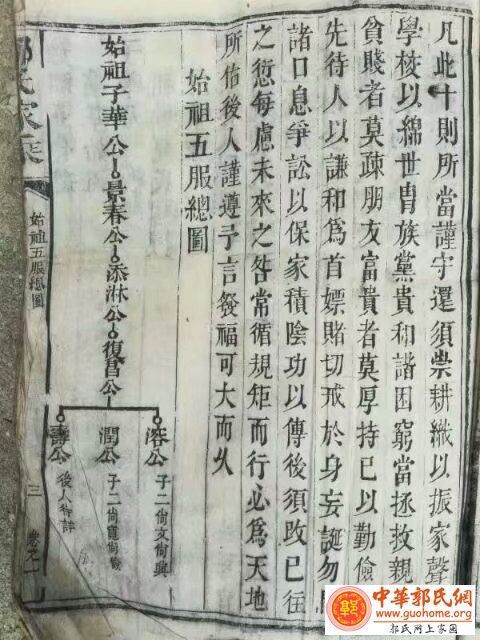 凡此十則所當謹守還須崇耕織以振家聲
學校以綿世胄族黨貴和諧困窮當拯救親
貧賤者莫疎朋友富貴者莫厚持己以勤儉
先待人以謙和爲首嫖賭切戒於身妄誕勿
諸口息爭訟以保家積陰功以傳後須改已往
之愆每慮未來之咎常循規矩而行必爲天地
所佑後人謹遵予言發福可大而久
始祖五服總圖
始祖子華公 景春公 添淋公 復昌公
濬公 子二尙文尙興
潤公 子二尙寬尙
壽公 後人待詳
郭氏家乘
始祖五服總圖
三 卷之一
中華郭氏網
www.guohome.org
郭氏网上家園